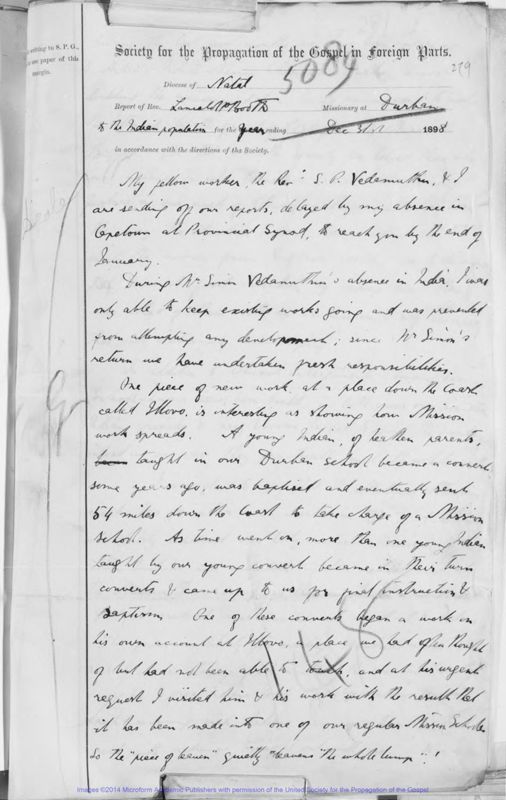 writing to S. P. G.,
use paper of this
margin.
Society for the Propagation of the Gospel in Foreign Parts.
5089
279
Diocese of Natal
Report of Rev. Lancelot P. Booth Missionary at Durban
to the Indian population for the Year ending Dec 31st 1898
in accordance with the directions of the Society.
My fellow worker, the Revd. S. P. Vedamuthu, & I
are sending off our reports, delayed by my absence in
Capetown at Provincial Synod, to reach you by the end of
January.
During Mr Simon Vedamuthu's absence in India, I was
only able to keep existing works going and was prevented
from attempting any development; since Mr Simon's
return we have undertaken fresh responsibilities.
One piece of new work, at a place down the Coast
called Illovo, is interesting as showing how Mission
work spreads. A young Indian, of heathen parents,
taught in our Durban School became a convert
some years ago, was baptised and eventually sent
54 miles down the Coast to take charge of a Mission
School. As time went on, more than one young Indian
taught by our young convert became in their turn
converts & came up to us for final instruction &
Baptism. One of these converts began a work on
his own account at Illovo, a place we had often thought
of but had not been able to touch, and at his urgent
request I visited him & his work with the result that
it has been made into one of our regular Mission Schools.
So the "piece of leaven" quietly "leavens the whole lump"!
Images ©2014 Microform Academic Publishers with permission of the United Society for the Propagation of the Gospel